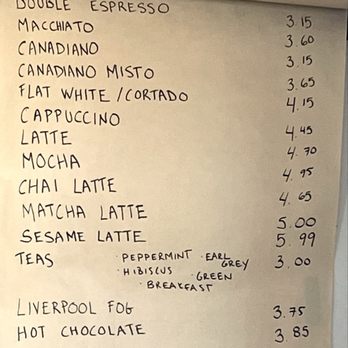 DOUBLE ESPRESSO 3.15
MACCHIATO 3.60
CANADIANO 3.15
CANADIANO MISTO 3.65
FLAT WHITE / CORTADO 4.15
CAPPUCCINO 4.45
LATTE 4.70
MOCHA 4.95
CHAI LATTE 4.65
MATCHA LATTE 5.00
SESAME LATTE 5.99
TEAS · PEPPERMINT · EARL GREY 3.00
· HIBISCUS · GREEN
· BREAKFAST
LIVERPOOL FOG 3.75
HOT CHOCOLATE 3.85